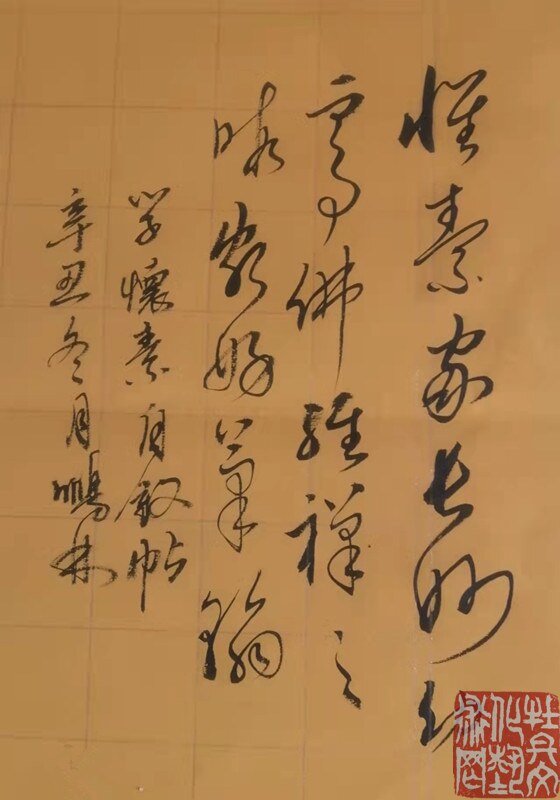 懷素家長沙幼
而事佛經禪之
暇頗好筆翰
学懷素自敘帖
辛丑冬月鵬林